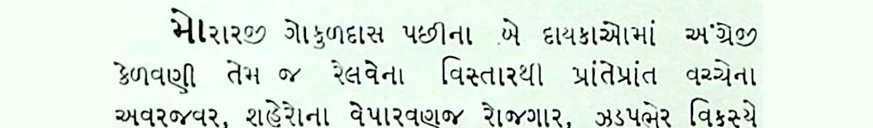 મોરારજી ગોકુળદાસ પછીના બે દાયકાઓમાં અંગ્રેજી
કેળવણી તેમ જ રેલવેના વિસ્તારથી પ્રાંતેપ્રાંત વચ્ચેના
અવરજવર, શહેરોના વેપારવણજ રોજગાર, ઝડપભેર વિકસ્યે